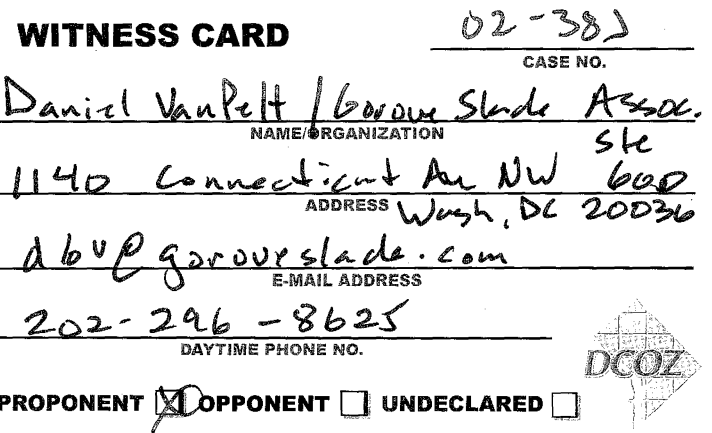 WITNESS CARD
02-38J
CASE NO.
Daniel VanPelt / Gorove Slade Assoc.
NAME/ORGANIZATION
1140 Connecticut Av NW Ste 600
ADDRESS
Wash, DC 20036
dbv@goroveslade.com
E-MAIL ADDRESS
202-296-8625
DAYTIME PHONE NO.
DCOZ
PROPONENT OPPONENT UNDECLARED